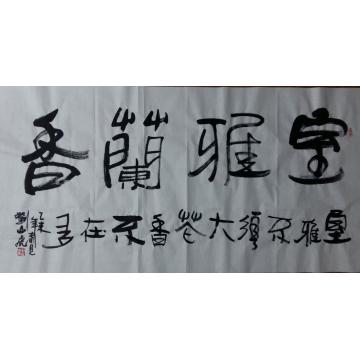 室雅蘭香
室雅不須大花香不在多
乙未
年